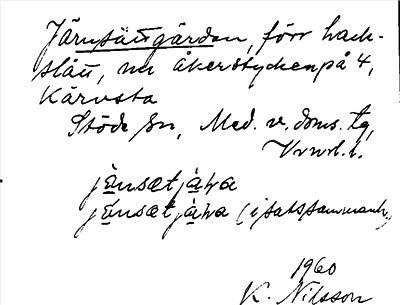 Järnsättgärdan, förr hack-
slått, nu åkerstycken på 4,
Kärvsta
Stöde sn, Med. v. doms. tg,
Vnrl. l.
jänsætjäḷa
jänsætjäḷa (i satssammanh.)
1960
K. Nilsson